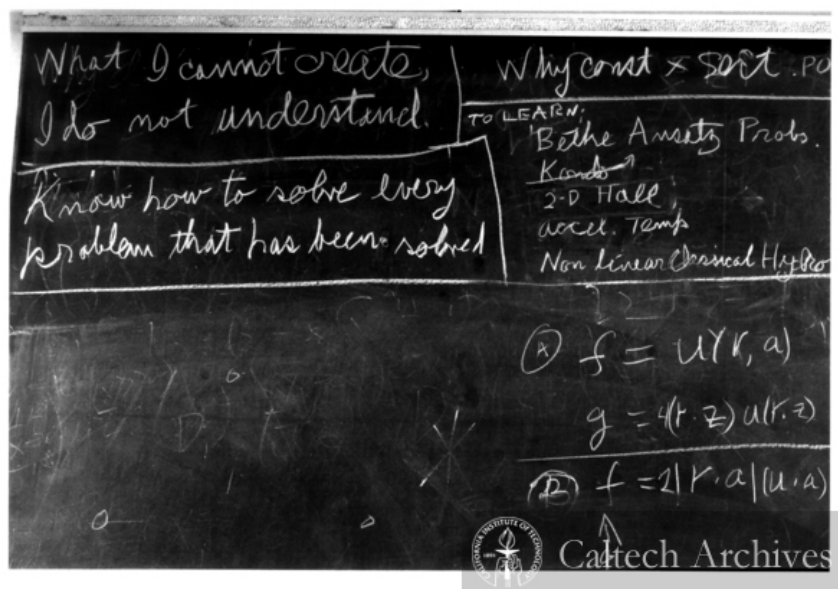 What I cannot create,
I do not understand.
Know how to solve every
problem that has been solved
Why const × sort . PO
TO LEARN:
Bethe Ansatz Probs.
Kondo
2-D Hall
accel. Temp
Non Linear Classical Hydro
Ⓐ f = u(r, a)
g = 4(r·z) u(r·z)
Ⓑ f = 2|r·a|(u·a)
CALIFORNIA INSTITUTE OF TECHNOLOGY
1891
Caltech Archives